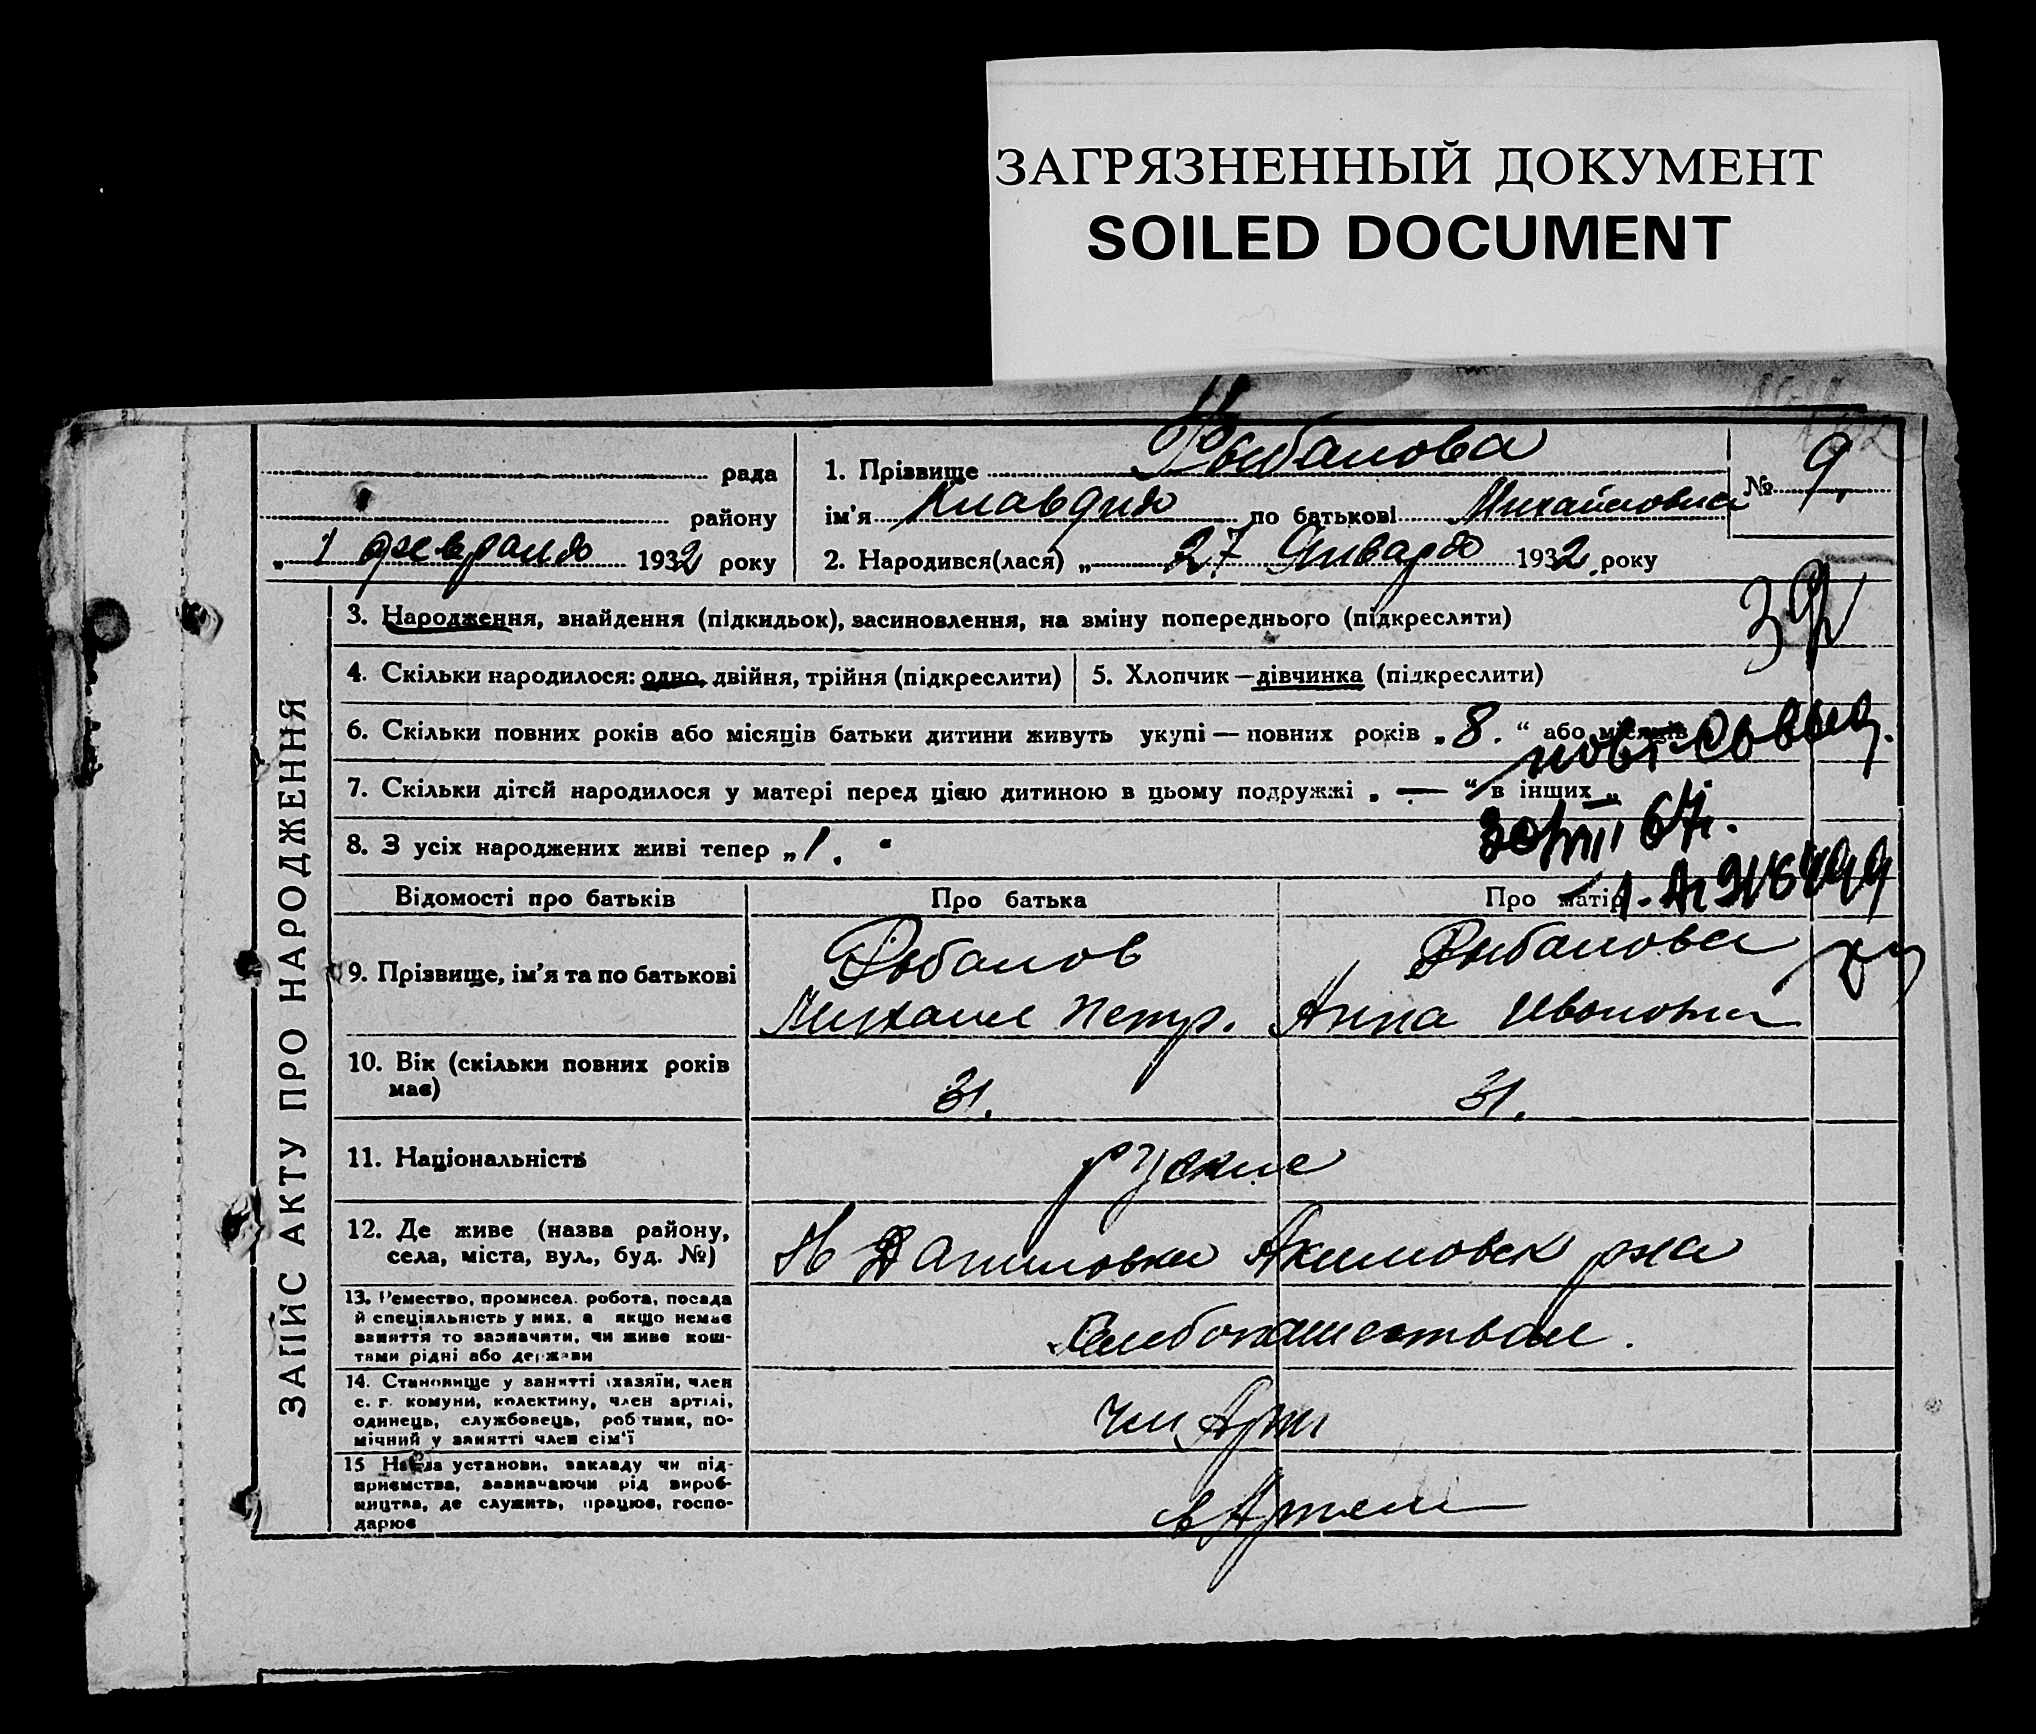 ЗАГРЯЗНЕННЫЙ ДОКУМЕНТ
SOILED DOCUMENT
рада
району
„ 1 февраля 1932 року
1. Прізвище Рыбалова
ім'я Клавдия по батькові Михайловна
2. Народився(лася) „ 27 Января 1932 року
№ 9.
ЗАПИС АКТУ ПРО НАРОДЖЕННЯ
3. Народження, знайдення (підкидьок), засиновлення, на зміну попереднього (підкреслити)
39
4. Скільки народилося: одно, двійня, трійня (підкреслити)
5. Хлопчик — дівчинка (підкреслити)
6. Скільки повних років або місяців батьки дитини живуть укупі — повних років „ 8. “ або місяців
7. Скільки дітей народилося у матері перед цією дитиною в цьому подружжі „ — “ в інших „
8. З усіх народжених живі тепер „ 1. “
Відомості про батьків
Про батька
Про матір
9. Прізвище, ім'я та по батькові
Рыбалов
Михаил Петр.
Рыбалова
Анна Ивановна
10. Вік (скільки повних років має)
31.
31.
11. Національність
руские
12. Де живе (назва району,
села, міста, вул., буд. №)
Н Даниловка Акимовск рна
13. Ремество, промисел, робота, посада
й спеціяльність у них, а якщо немає
заняття то зазначити, чи живе кош-
тами рідні або держави
Хлебопашеством.
14. Становище у занятті (хазяїн, член
с. г. комуни, колективу, член артілі,
одинець, службовець, робітник, по-
мічний у занятті член сім'ї
Чл. Арт
15 Назва установи, закладу чи під-
приємства, зазначаючи рід вироб-
ництва, де служить, працює, госпо-
дарює
в Артели